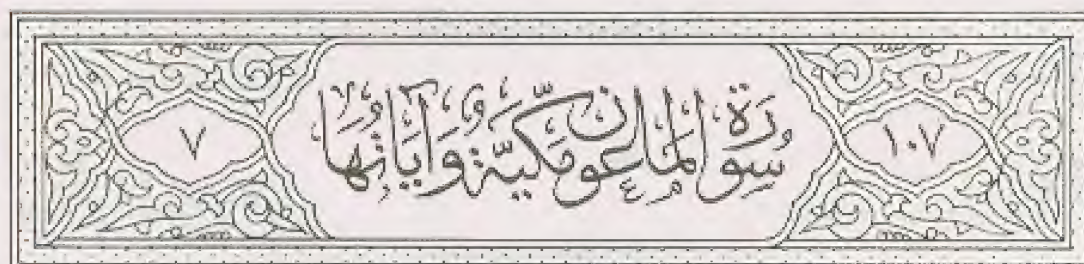 ١٠٧ سُورَةُ المَاعُونِ مَكِّيَّة وَآيَاتُهَا ٧